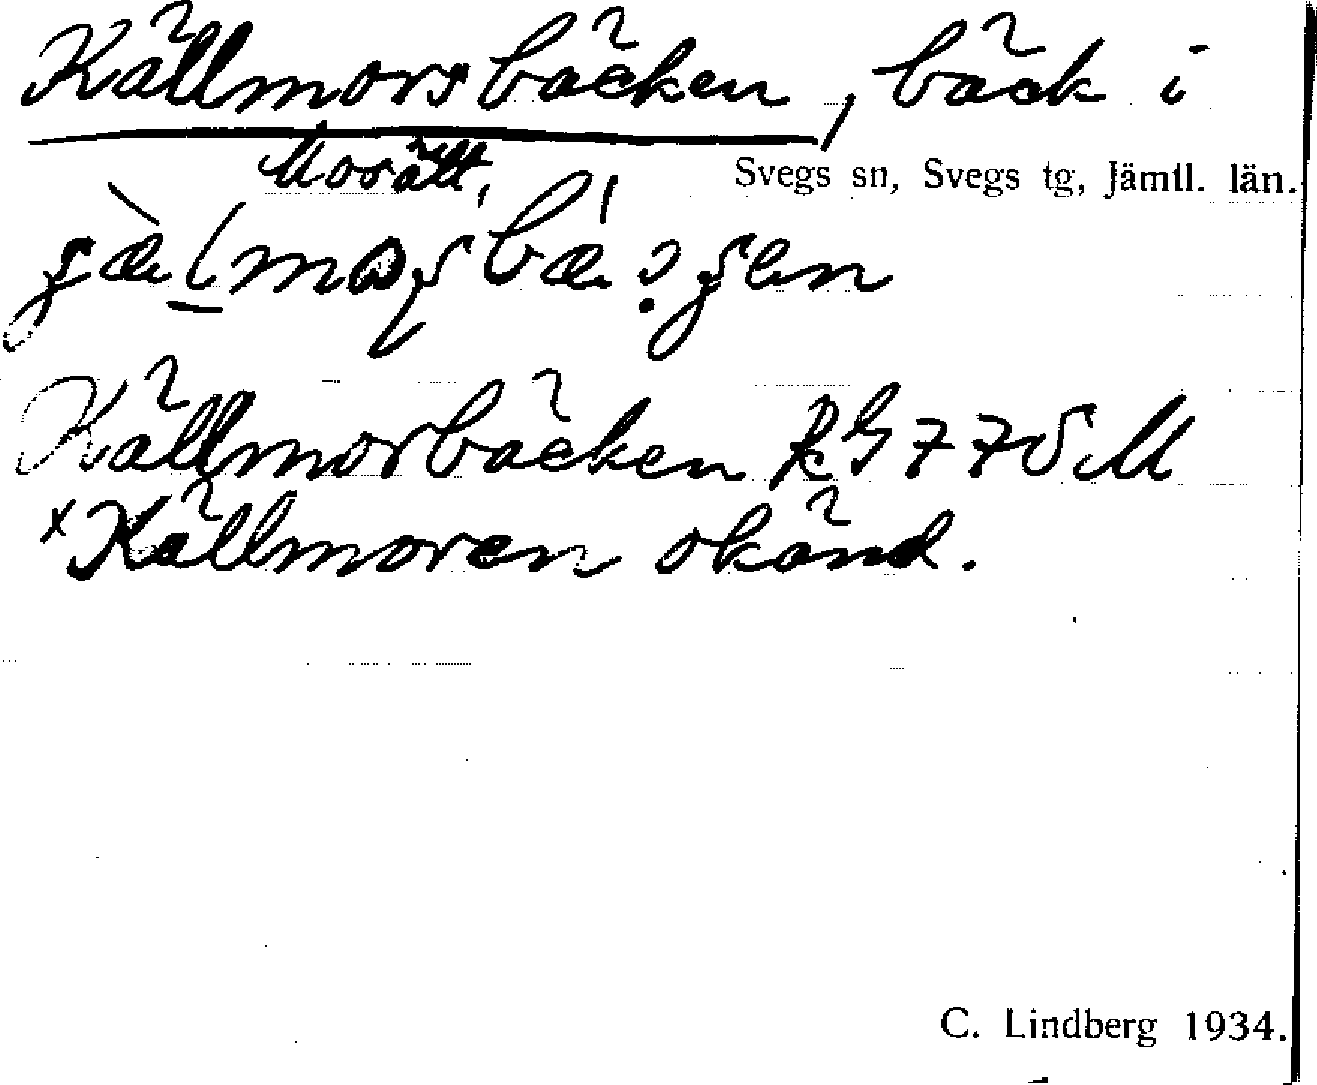 Källmorsbäcken, bäck i
Morätt, Svegs sn, Svegs tg, Jämtl. län.
Källmorbäcken RG 77 SM
*Källmoren okänd.
C. Lindberg 1934.